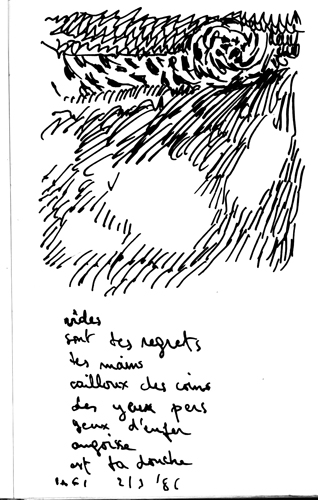 vides
sont tes regrets
tes mains
cailloux des coins
des yeux pers
jeux d'enfer
angoisse
est ta douche
2/3 '86